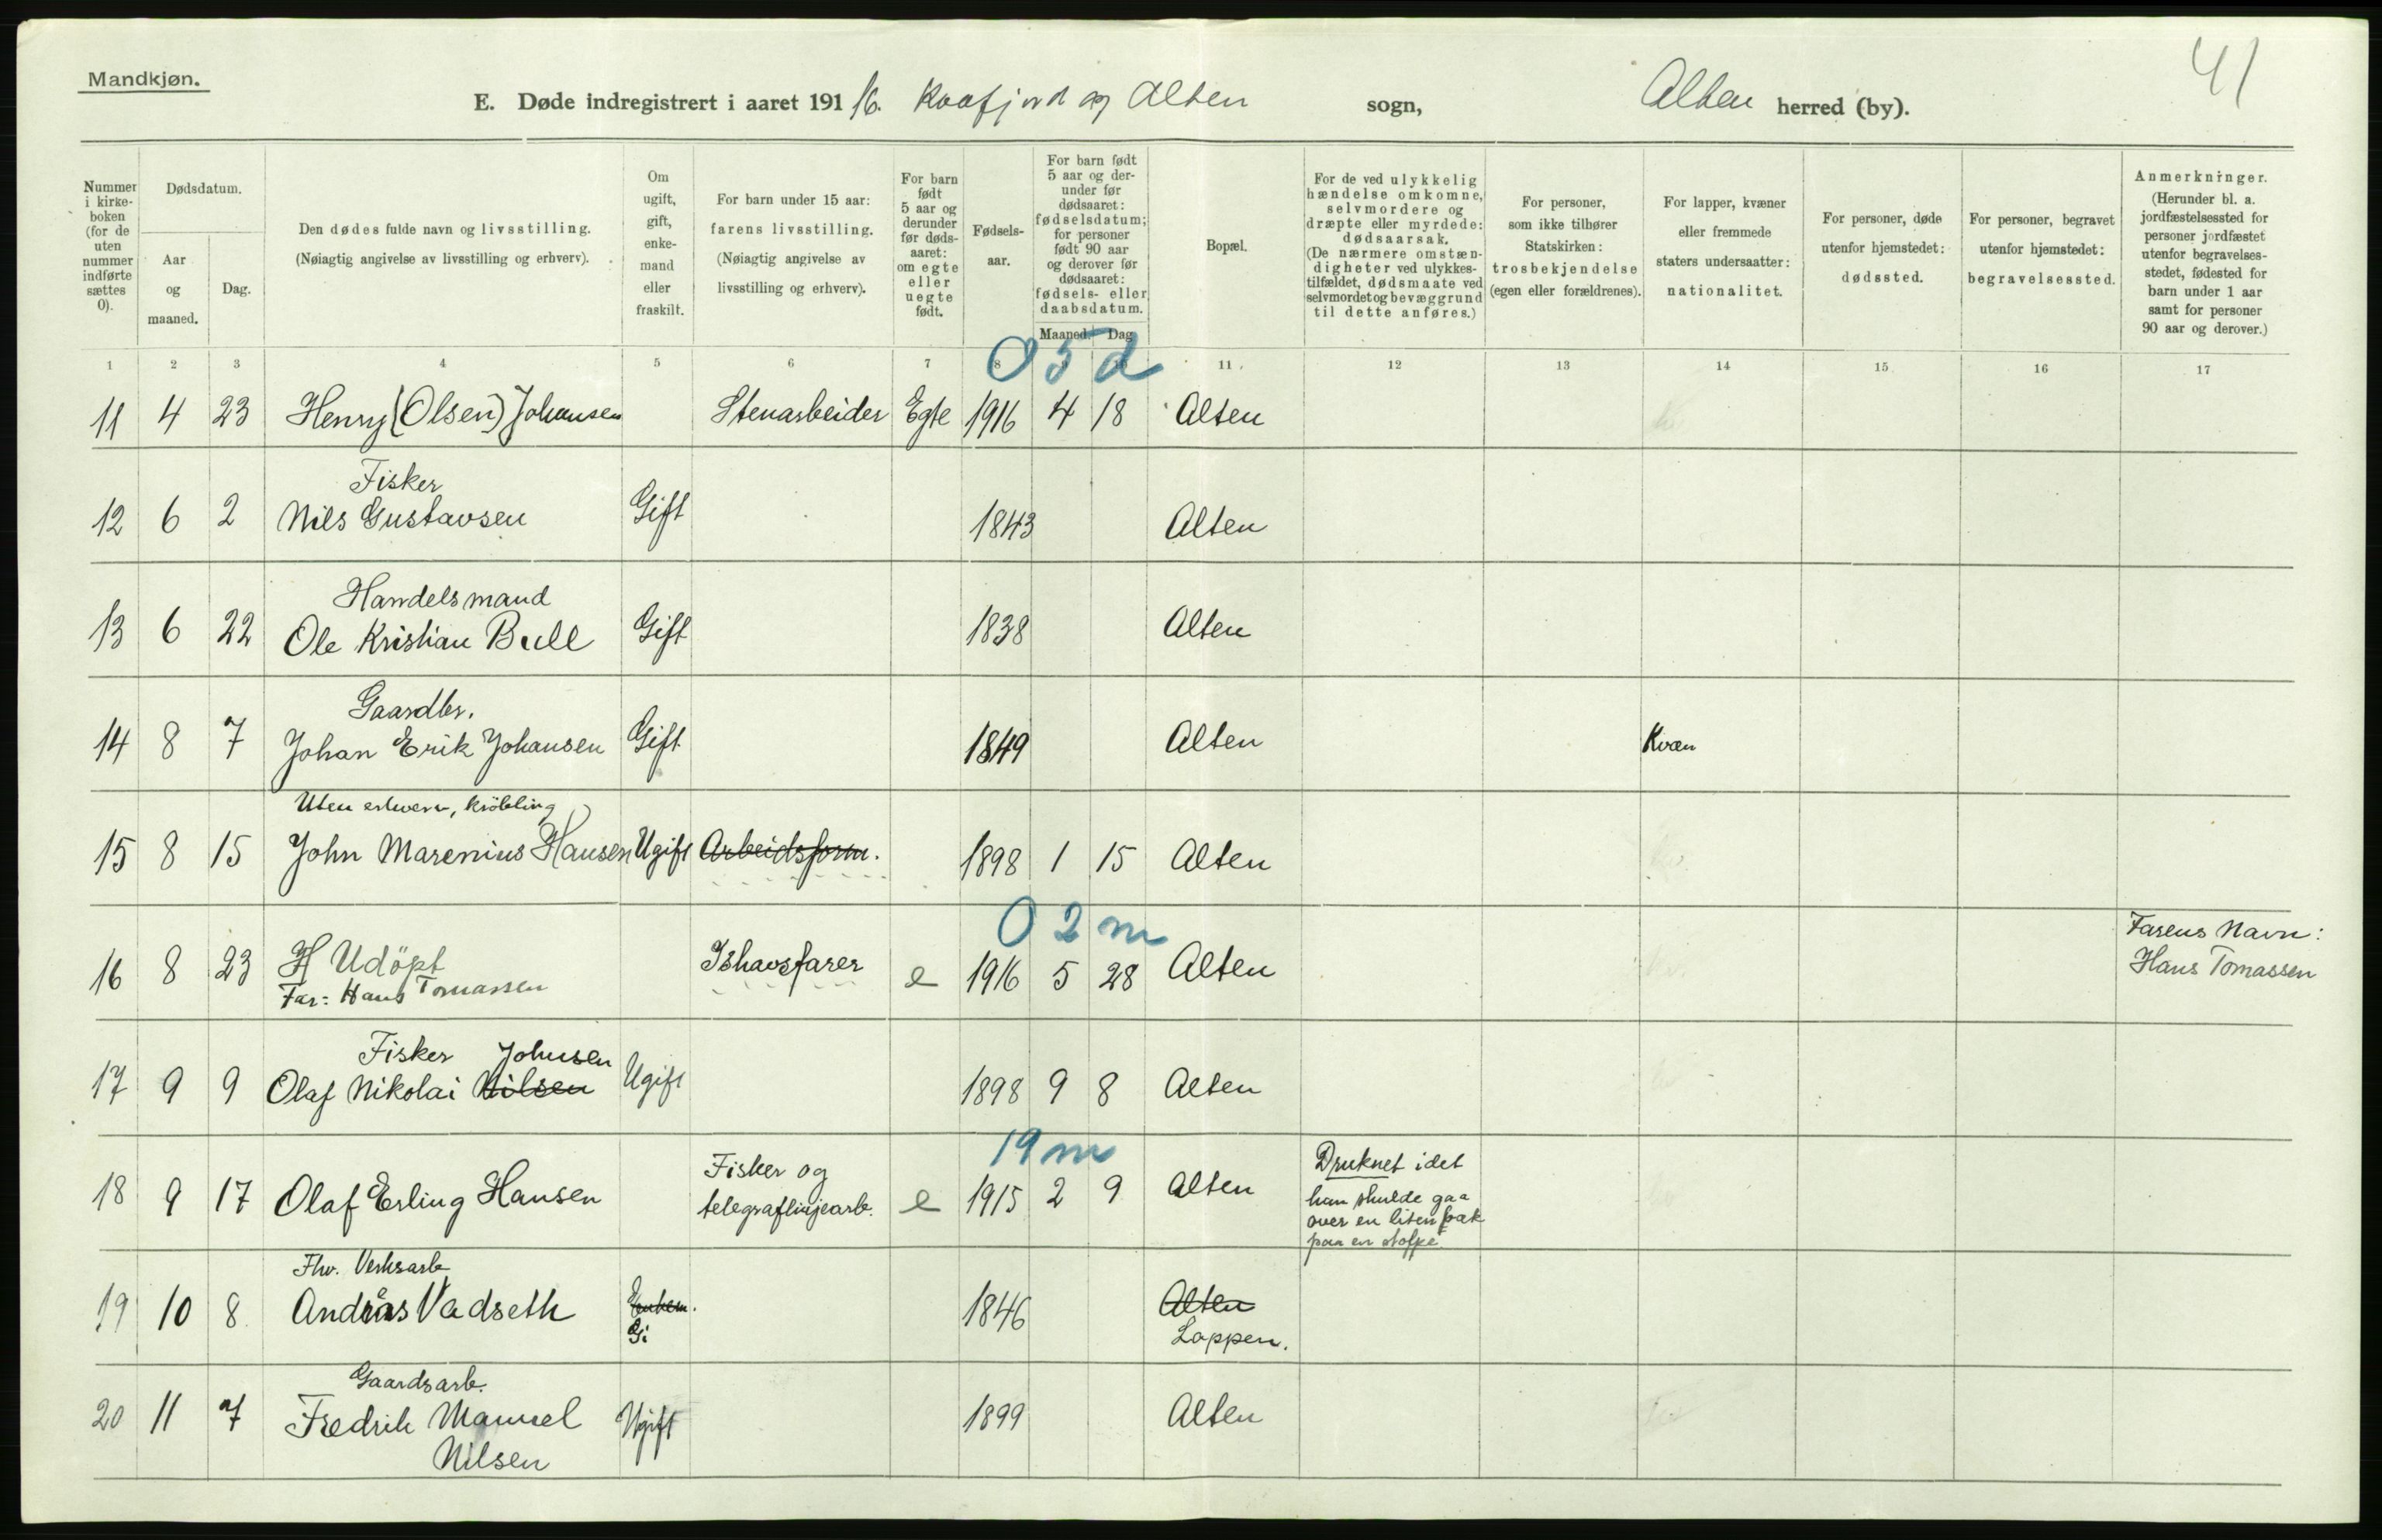 Mandkjøn.
41
E. Døde indregistrert i aaret 191 16. Kaafjord og Alten sogn, Alten herred (by).
Nummer i kirke-boken (for de uten nummer indførte sættes 0).
Dødsdatum.
Aar og maaned.
Dag.
Den dødes fulde navn og livsstilling.
(Nøiagtig angivelse av livsstilling og erhverv).
Om ugift, gift, enke-mand eller fraskilt.
For barn under 15 aar:
farens livsstilling.
(Nøiagtig angivelse av
livsstilling og erhverv).
For barn født 5 aar og derunder før døds-aaret: om egte eller uegte født.
Fødsels-aar.
For barn født 5 aar og der-under før dødsaaret: fødselsdatum; for personer født 90 aar og derover før dødsaaret: fødsels- eller daabsdatum.
Maaned. Dag.
Bopæl.
For de ved ulykkelig hændelse omkomne, selvmordere og dræpte eller myrdede: dødsaarsak. (De nærmere omstæn-digheter ved ulykkes-tilfældet, dødsmaate ved selvmordet og bevæggrund til dette anføres.)
For personer, som ikke tilhører Statskirken: trosbekjendelse (egen eller forældrenes).
For lapper, kvæner eller fremmede staters undersaatter: nationalitet.
For personer, døde utenfor hjemstedet: dødssted.
For personer, begravet utenfor hjemstedet: begravelsessted.
Anmerkninger. (Herunder bl. a. jordfæstelsessted for personer jordfæstet utenfor begravelses-stedet, fødested for barn under 1 aar samt for personer 90 aar og derover.)
1 2 3 4 5 6 7 8 11 12 13 14 15 16 17
0 5 d
11 4 23 Henry (Olsen) Johansen Stenarbeider Egte 1916 4 18 Alten
Fisker
12 6 2 Nils Gustavsen Gift 1843 Alten
Handelsmand
13 6 22 Ole Kristian Bull Gift 1838 Alten
Gaardbr.
14 8 7 Johan Erik Johansen Gift 1849 Alten Kvæn
Uten erhverv, krøbling
15 8 15 John Marenius Hansen Ugift Arbeidsform. 1898 1 15 Alten
0 2 m
16 8 23 H Udöpt Ishavsfarer e 1916 5 28 Alten Farens Navn:
Far: Hans Tomassen Hans Tomassen
Fisker Johnsen
17 9 9 Olaf Nikolai Nilsen Ugift 1898 9 8 Alten
19 m
18 9 17 Olaf Erling Hansen Fisker og telegraflinjearb. e 1915 2 9 Alten Druknet idet
han skulde gaa
over en liten bæk
paa en stolpe
Fhv. Verksarb
19 10 8 Andreas Vadseth Enkem. 1846 Alten
Gi Loppen.
Gaardsarb.
20 11 7 Fredrik Manuel Ugift 1899 Alten
Nilsen